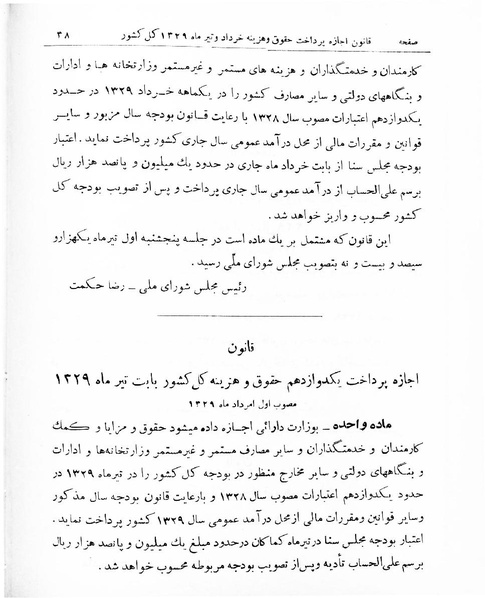 صفحه قانون اجازه پرداخت حقوق و هزینه خرداد و تیر ماه ۱۳۲۹ کل کشور ۳۸
کارمندان و خدمتگذاران و هزینه های مستمر و غیرمستمر وزارتخانه ها و ادارات
و بنگاههای دولتی و سایر مصارف کشور را در یکماهه خرداد ۱۳۲۹ در حدود
یکدوازدهم اعتبارات مصوب سال ۱۳۲۸ با رعایت قانون بودجه سال مزبور و سایر
قوانین و مقررات مالی از محل درآمد عمومی سال جاری کشور پرداخت نماید . اعتبار
بودجه مجلس سنا از بابت خرداد ماه جاری در حدود یك میلیون و پانصد هزار ریال
برسم علی‌الحساب از درآمد عمومی سال جاری پرداخت و پس از تصویب بودجه کل
کشور محسوب و واریز خواهد شد .
این قانون که مشتمل بر یك ماده است در جلسه پنجشنبه اول تیرماه یکهزارو
سیصد و بیست و نه بتصویب مجلس شورای ملّی رسید .
رئیس مجلس شورای ملی ــ رضا حکمت
قانون
اجازه پرداخت یکدوازدهم حقوق و هزینه کل کشور بابت تیر ماه ۱۳۲۹
مصوب اول امرداد ماه ۱۳۲۹
ماده واحده ــ بوزارت دارائی اجازه داده میشود حقوق و مزایا و کمك
کارمندان و خدمتگذاران و سایر مصارف مستمر و غیرمستمر وزارتخانه‌ها و ادارات
و بنگاههای دولتی و سایر مخارج منظور در بودجه کل کشور را در تیرماه ۱۳۲۹ در
حدود یکدوازدهم اعتبارات مصوب سال ۱۳۲۸ و بارعایت قانون بودجه سال مذکور
وسایر قوانین ومقررات مالی ازمحل درآمد عمومی سال ۱۳۲۹ کشور پرداخت نماید .
اعتبار بودجه مجلس سنا در تیرماه کماکان درحدود مبلغ یك میلیون و پانصد هزار ریال
برسم علی‌الحساب تأدیه وپس از تصویب بودجه مربوطه محسوب خواهد شد .